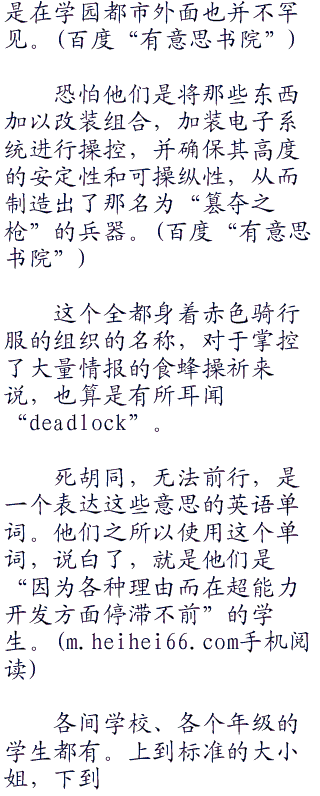 是在学园都市外面也并不罕
见。(百度“有意思书院”)
恐怕他们是将那些东西
加以改装组合，加装电子系
统进行操控，并确保其高度
的安定性和可操纵性，从而
制造出了那名为“篡夺之
枪”的兵器。(百度“有意思
书院”)
这个全都身着赤色骑行
服的组织的名称，对于掌控
了大量情报的食蜂操祈来
说，也算是有所耳闻
“deadlock”。
死胡同，无法前行，是
一个表达这些意思的英语单
词。他们之所以使用这个单
词，说白了，就是他们是
“因为各种理由而在超能力
开发方面停滞不前”的学
生。(m.heihei66.com手机阅
读)
各间学校、各个年级的
学生都有。上到标准的大小
姐，下到